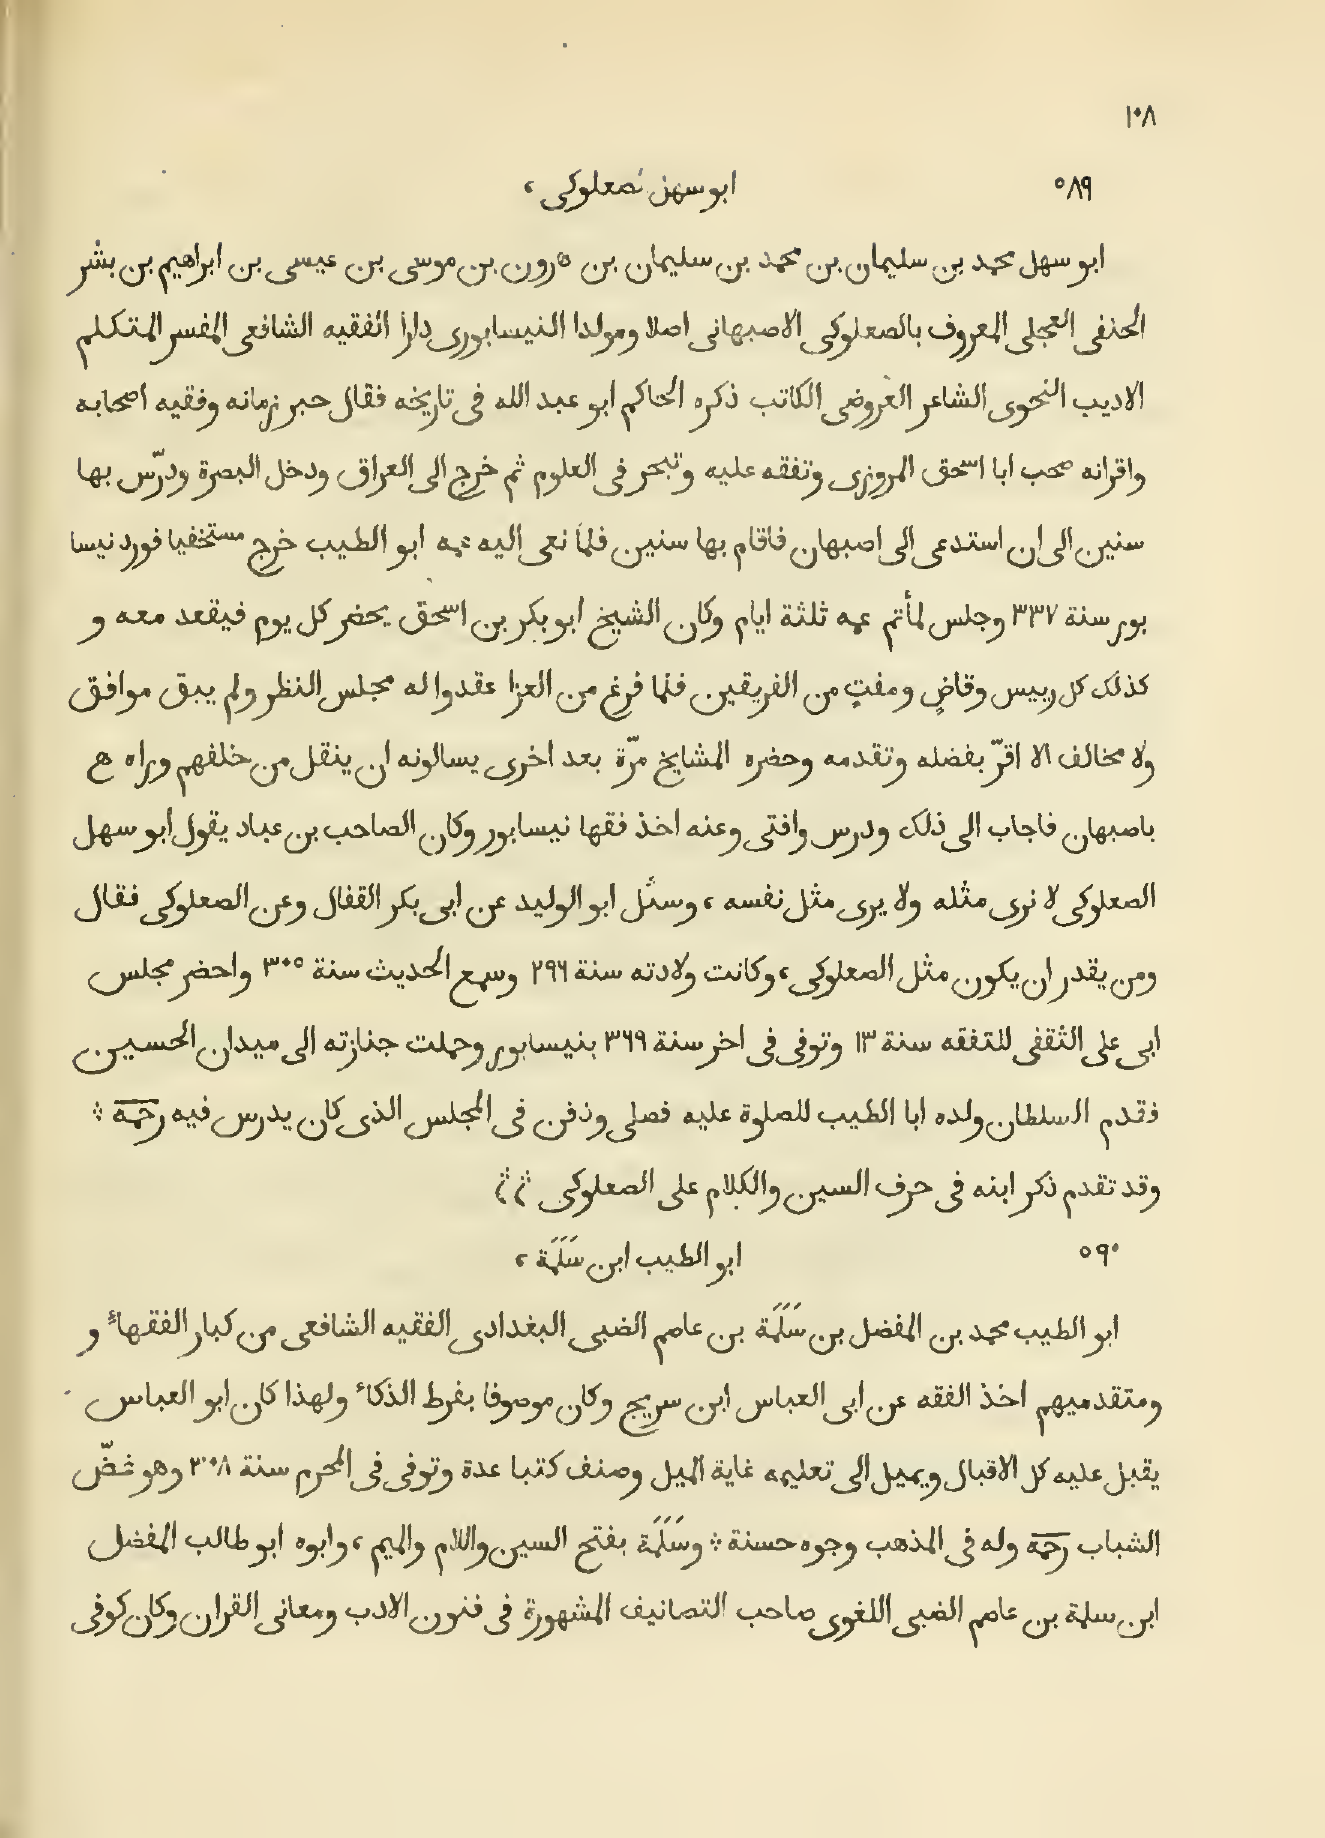 ١٠٨
٥٨٩
ابو سهل الصعلوكى ،
ابو سهل محمد بن سليمان بن محمد بن سليمان بن هرون بن موسى بن عيسى بن ابراهيم بن بشر
الحنفى العجلى المعروف بالصعلوكى الاصبهانى اصلا ومولدا النيسابورى دارا الفقيه الشافعى المفسر المتكلم
الاديب النحوى الشاعر العروضى الكاتب ذكره الحاكم ابو عبد الله فى تاريخه فقال حبر زمانه وفقيه اصحابه
واقرانه صحب ابا اسحق المروزى وتفقه عليه وتبحر فى العلوم ثم خرج الى العراق ودخل البصرة ودرّس بها
سنين الى ان استدعى الى اصبهان فاقام بها سنين فلما نعى اليه عمه ابو الطيب خرج مستخفيا فورد نيسا
بور سنة ٣٣٧ وجلس لمأتم عمه ثلثة ايام وكان الشيخ ابو بكر بن اسحق يحضر كل يوم فيقعد معه و
كذلك كل رييس وقاضٍ ومفتٍ من الفريقين فلما فرغ من العزا عقدوا له مجلس النظر ولم يبق موافق
ولا مخالف الا اقرّ بفضله وتقدمه وحضره المشايخ مرّة بعد اخرى يسالونه ان ينقل من خلفهم وراه
باصبهان فاجاب الى ذلك ودرس وافتى وعنه اخذ فقها نيسابور وكان الصاحب بن عباد يقول ابو سهل
الصعلوكى لا نرى مثله ولا يرى مثل نفسه ، وسئل ابو الوليد عن ابى بكر القفال وعن الصعلوكى فقال
ومن يقدر ان يكون مثل الصعلوكى ، وكانت ولادته سنة ٢٩٦ وسمع الحديث سنة ٣٠٥ واحضر مجلس
ابى على الثقفى للتفقه سنة ١٣ وتوفى فى اخر سنة ٣٦٩ بنيسابور وحملت جنازته الى ميدان الحسين
فقدم السلطان ولده ابا الطيب للصلوة عليه فصلى ودفن فى المجلس الذى كان يدرس فيه رحمه ⁘
وقد تقدم ذكر ابنه فى حرف السين والكلام على الصعلوكى
٥٩٠
ابو الطيب ابن سَلَمَة ،
ابو الطيب محمد بن المفضل بن سَلَمَة بن عاصم الضبى البغدادى الفقيه الشافعى من كبار الفقهاء و
ومتقدميهم اخذ الفقه عن ابى العباس ابن سريج وكان موصوفا بفرط الذكاء ولهذا كان ابو العباس
يقبل عليه كل الاقبال ويميل الى تعليمه غاية الميل وصنف كتبا عدة وتوفى فى المحرم سنة ٣٠٨ وهو غضّ
الشباب رحمه وله فى المذهب وجوه حسنة ⁘ وسَلَمَة بفتح السين واللام والميم ، وابوه ابو طالب المفضل
ابن سلمة بن عاصم الضبى اللغوى صاحب التصانيف المشهورة فى فنون الادب ومعانى القران وكان كوفى